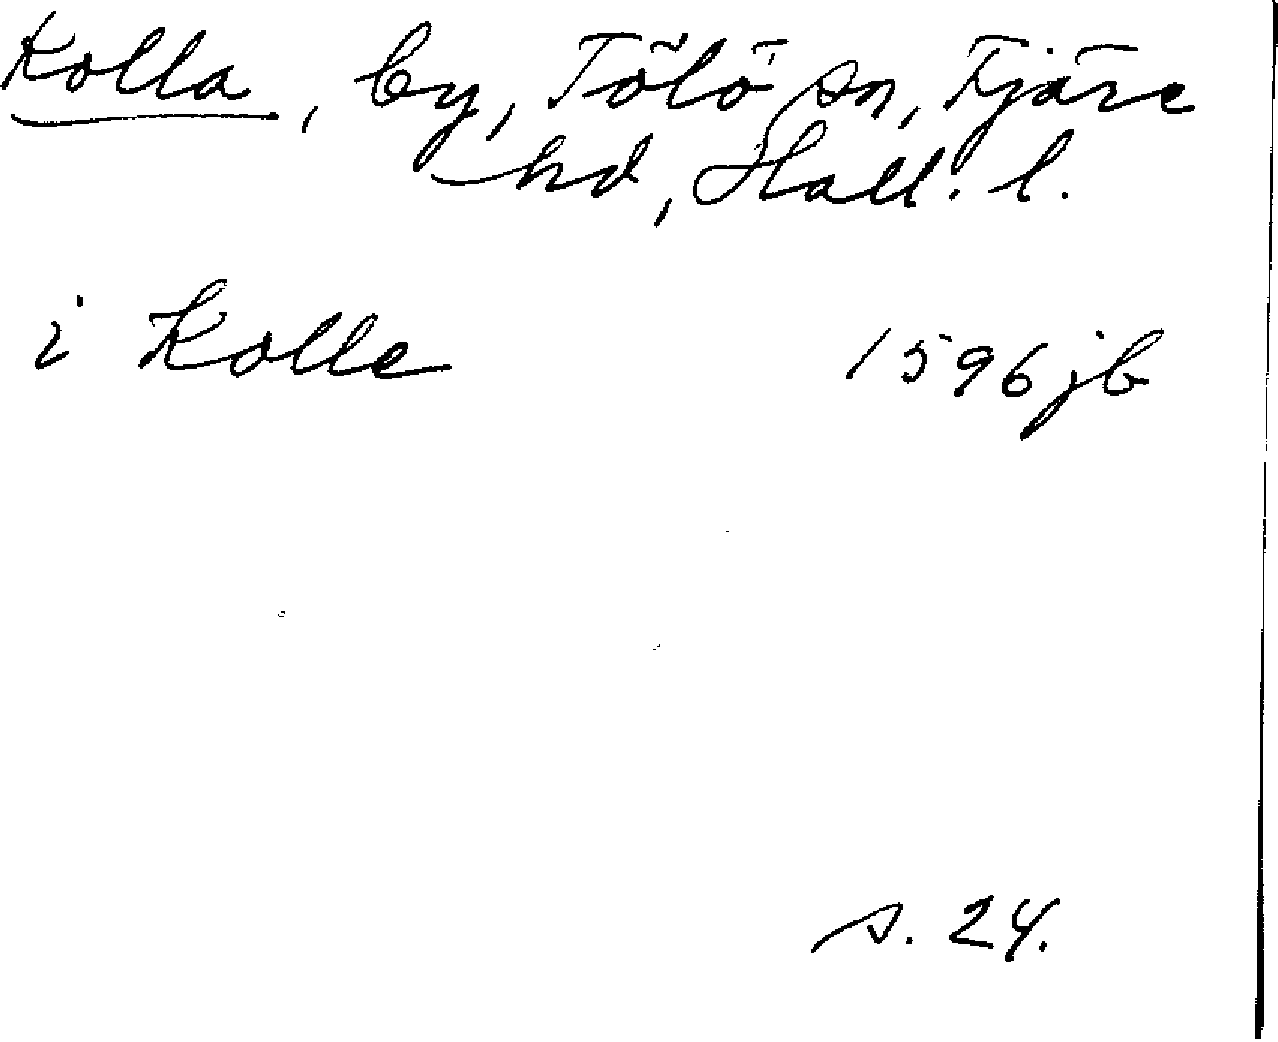 Kolla, by, Tölö sn, Fjäre
hd, Hall. l.
i Kolle 1596 jb
s. 24.